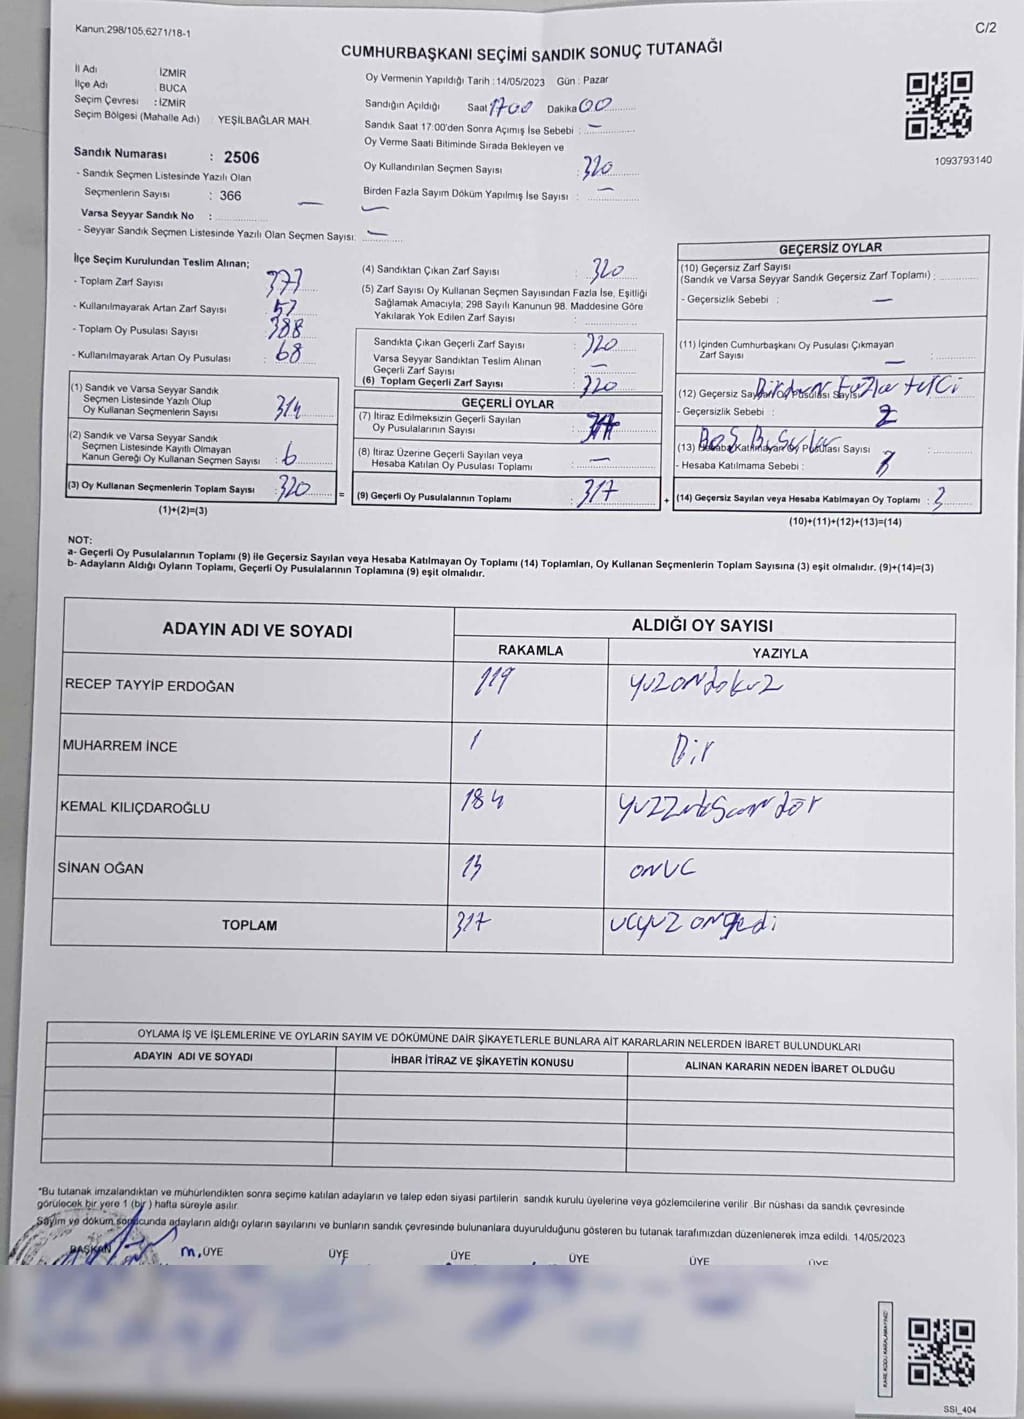 Kanun:298/105,6271/18-1
C/2
CUMHURBAŞKANI SEÇİMİ SANDIK SONUÇ TUTANAĞI
İl Adı : İZMİR
İlçe Adı : BUCA
Seçim Çevresi : İZMİR
Seçim Bölgesi (Mahalle Adı) : YEŞİLBAĞLAR MAH.
Sandık Numarası : 2506
- Sandık Seçmen Listesinde Yazılı Olan
Seçmenlerin Sayısı : 366
Varsa Seyyar Sandık No :
- Seyyar Sandık Seçmen Listesinde Yazılı Olan Seçmen Sayısı: —
Oy Vermenin Yapıldığı Tarih : 14/05/2023 Gün : Pazar
Sandığın Açıldığı Saat 1700 Dakika 00
Sandık Saat 17:00'den Sonra Açılmış İse Sebebi : —
Oy Verme Saati Bitiminde Sırada Bekleyen ve
Oy Kullandırılan Seçmen Sayısı : 320
Birden Fazla Sayım Döküm Yapılmış İse Sayısı : —
1093793140
İlçe Seçim Kurulundan Teslim Alınan;
- Toplam Zarf Sayısı : 377
- Kullanılmayarak Artan Zarf Sayısı : 57
- Toplam Oy Pusulası Sayısı : 388
- Kullanılmayarak Artan Oy Pusulası : 68
(1) Sandık ve Varsa Seyyar Sandık
Seçmen Listesinde Yazılı Olup
Oy Kullanan Seçmenlerin Sayısı : 314
(2) Sandık ve Varsa Seyyar Sandık
Seçmen Listesinde Kayıtlı Olmayan
Kanun Gereği Oy Kullanan Seçmen Sayısı : 6
(3) Oy Kullanan Seçmenlerin Toplam Sayısı : 320
(1)+(2)=(3)
=
(4) Sandıktan Çıkan Zarf Sayısı : 320
(5) Zarf Sayısı Oy Kullanan Seçmen Sayısından Fazla İse, Eşitliği
Sağlamak Amacıyla; 298 Sayılı Kanunun 98. Maddesine Göre
Yakılarak Yok Edilen Zarf Sayısı :
Sandıkta Çıkan Geçerli Zarf Sayısı : 320
Varsa Seyyar Sandıktan Teslim Alınan
Geçerli Zarf Sayısı : —
(6) Toplam Geçerli Zarf Sayısı : 320
GEÇERLİ OYLAR
(7) İtiraz Edilmeksizin Geçerli Sayılan
Oy Pusulalarının Sayısı :
(8) İtiraz Üzerine Geçerli Sayılan veya
Hesaba Katılan Oy Pusulası Toplamı : —
(9) Geçerli Oy Pusulalarının Toplamı : 317
+
GEÇERSİZ OYLAR
(10) Geçersiz Zarf Sayısı
(Sandık ve Varsa Seyyar Sandık Geçersiz Zarf Toplamı) :
- Geçersizlik Sebebi : —
(11) İçinden Cumhurbaşkanı Oy Pusulası Çıkmayan
Zarf Sayısı : —
(12) Geçersiz Sayılan Oy Pusulası Sayısı Birden Fazla
- Geçersizlik Sebebi : 2
(13) Hesaba Katılmayan Oy Pusulası Sayısı :
- Hesaba Katılmama Sebebi :
(14) Geçersiz Sayılan veya Hesaba Katılmayan Oy Toplamı : 3
(10)+(11)+(12)+(13)=(14)
NOT:
a- Geçerli Oy Pusulalarının Toplamı (9) ile Geçersiz Sayılan veya Hesaba Katılmayan Oy Toplamı (14) Toplamları, Oy Kullanan Seçmenlerin Toplam Sayısına (3) eşit olmalıdır. (9)+(14)=(3)
b- Adayların Aldığı Oyların Toplamı, Geçerli Oy Pusulalarının Toplamına (9) eşit olmalıdır.
ADAYIN ADI VE SOYADI
ALDIĞI OY SAYISI
RAKAMLA YAZIYLA
RECEP TAYYİP ERDOĞAN 119 yuzondokuz
MUHARREM İNCE 1 Bir
KEMAL KILIÇDAROĞLU 184
SİNAN OĞAN 13 onuc
TOPLAM 317 ucyuz onyedi
OYLAMA İŞ VE İŞLEMLERİNE VE OYLARIN SAYIM VE DÖKÜMÜNE DAİR ŞİKAYETLERLE BUNLARA AİT KARARLARIN NELERDEN İBARET BULUNDUKLARI
ADAYIN ADI VE SOYADI İHBAR İTİRAZ VE ŞİKAYETİN KONUSU ALINAN KARARIN NEDEN İBARET OLDUĞU
*Bu tutanak imzalandıktan ve mühürlendikten sonra seçime katılan adayların ve talep eden siyasi partilerin sandık kurulu üyelerine veya gözlemcilerine verilir. Bir nüshası da sandık çevresinde
görülecek bir yere 1 (bir) hafta süreyle asılır.
Sayım ve döküm sonucunda adayların aldığı oyların sayılarını ve bunların sandık çevresinde bulunanlara duyurulduğunu gösteren bu tutanak tarafımızdan düzenlenerek imza edildi. 14/05/2023
BAŞKAN m, ÜYE ÜYE ÜYE ÜYE ÜYE ÜYE
KARE KODU KARALAMAYINIZ!
SSI_404